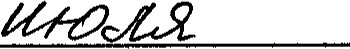 июля